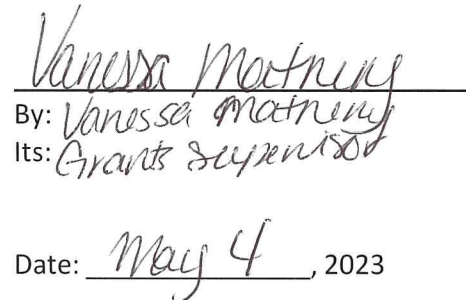 Vanessa Matheny
By: Vanessa Matheny
Its: Grants Supervisor
Date: May 4, 2023